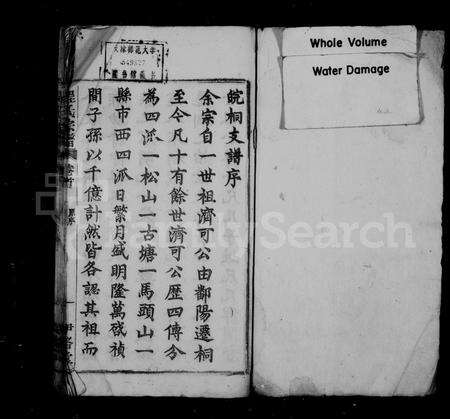 Whole Volume
Water Damage
皖桐支譜序
余宗自一世祖濟可公由鄱陽遷桐
至今凡十有餘世濟可公歷四傳分
為四派一松山一古塘一馬頭山一
縣市西四派日繁月盛明隆萬啟禎
間子孫以千億計然皆各認其祖而
FamilySearch